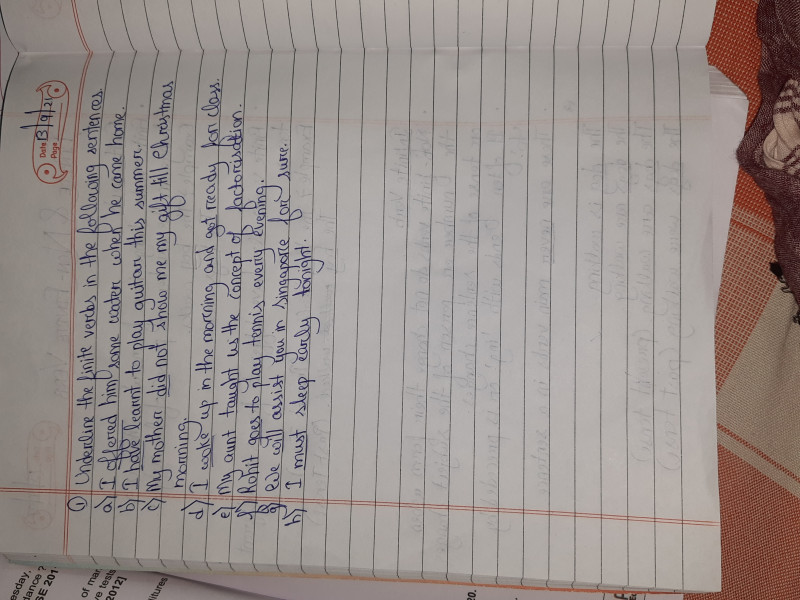 Date 13/9/21
Page
① Underline the finite verbs in the following sentences.
a) I offered him some water when he came home.
b) I have learnt to play guitar this summer.
c) My mother did not show me my gift till Christmas
morning.
d) I woke up in the morning and got ready for class.
e) My aunt taught us the concept of factorisation.
f) Rohit goes to play tennis every evening.
g) We will assist you in singapore for sure.
h) I must sleep early tonight.
esday,
dance?
SE 201
of mar
ve tests
2012]
itures
20.